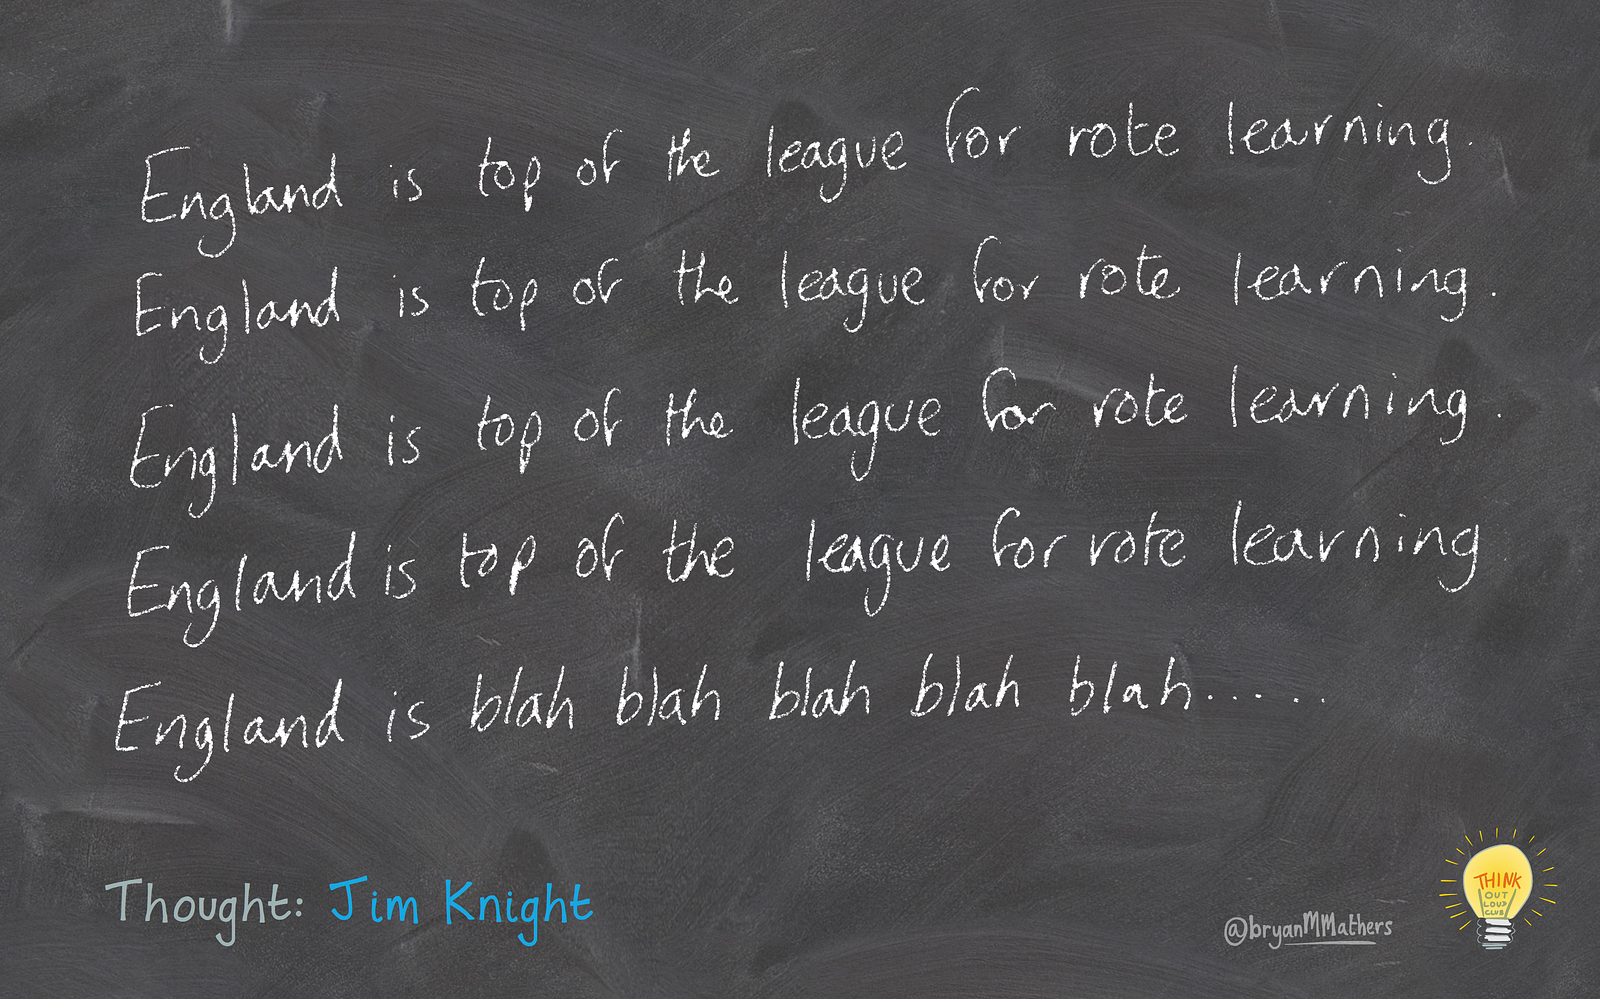 England is top of the league for rote learning.
England is top of the league for rote learning.
England is top of the league for rote learning.
England is top of the league for rote learning
England is blah blah blah blah blah.....
Thought: Jim Knight
@bryanMMathers
THINK
OUT
LOUD
CLUB